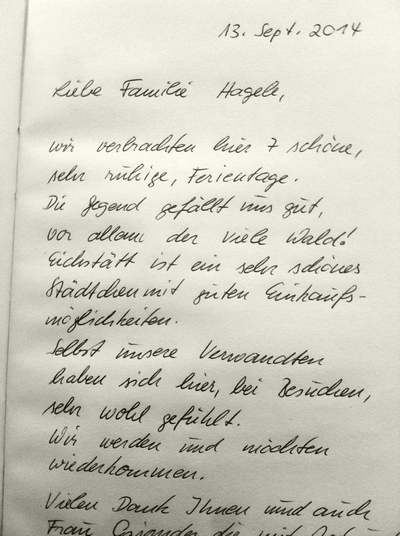 13. Sept. 2014
Liebe Familie Hagele,
wir verbrachten hier 7 schöne,
sehr ruhige, Ferientage.
Die Gegend gefällt uns gut,
vor allem der viele Wald!
Eichstätt ist ein sehr schönes
Städtchen mit guten Einkaufs-
möglichkeiten.
Selbst unsere Verwandten
haben sich hier, bei Besuchen,
sehr wohl gefühlt.
Wir werden und möchten
wiederkommen.
Vielen Dank Ihnen und auch
Frau die mit